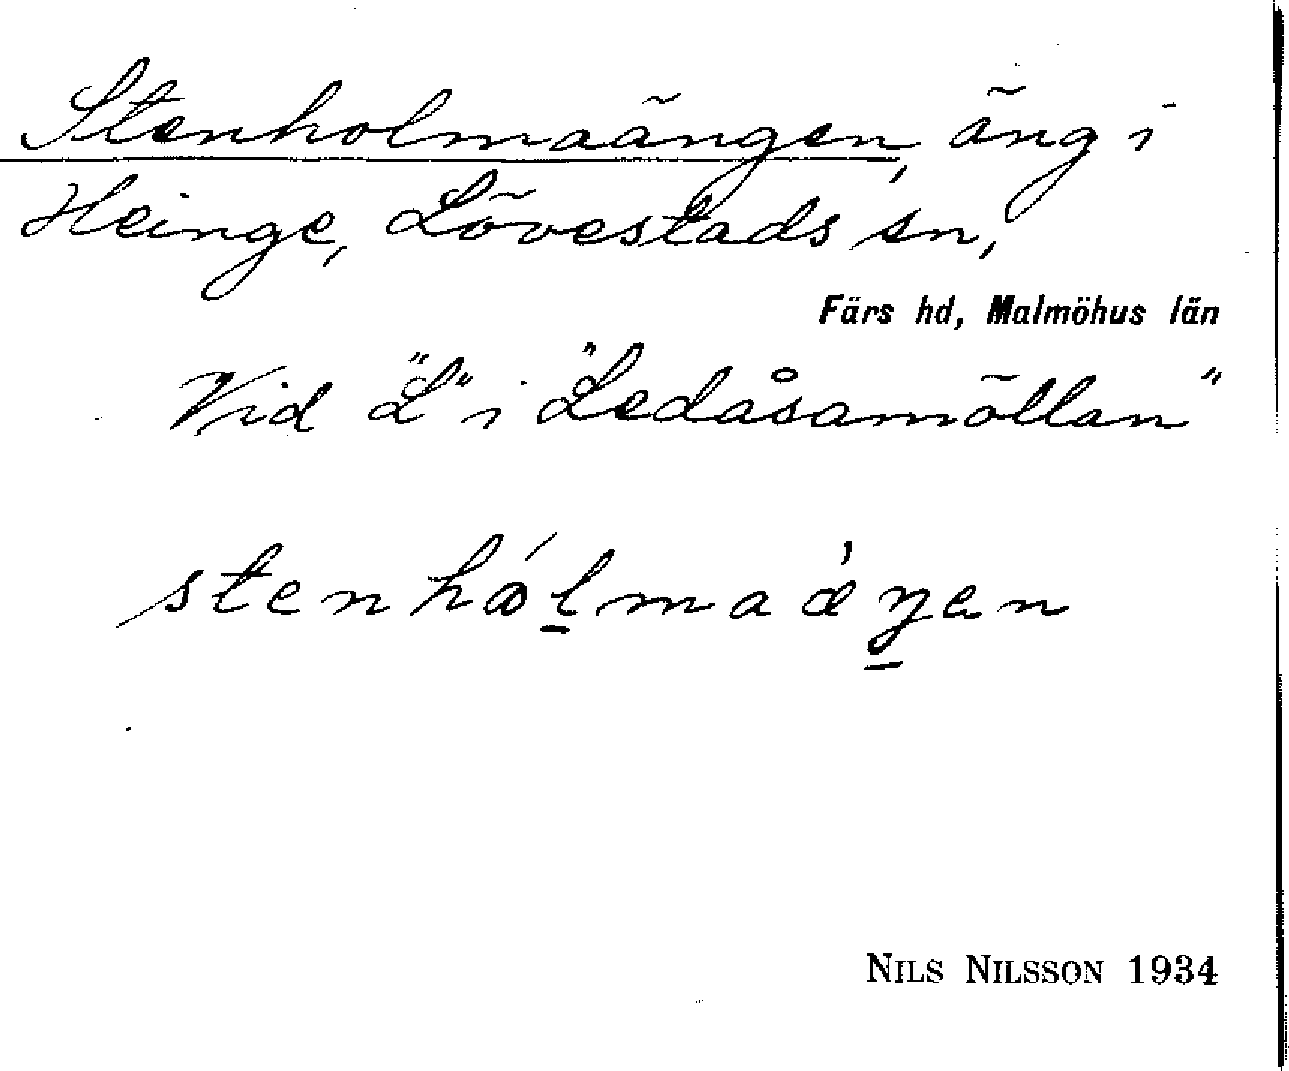 Stenholmaängen, äng i
Heinge, Lövestads sn,
Färs hd, Malmöhus län
Vid "L" i "Ledåsamöllan"
stenhólmaæ̀ŋen
NILS NILSSON 1934